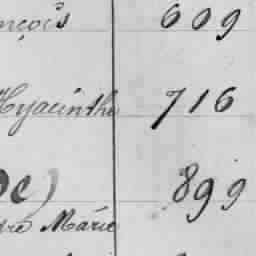 nçois 609
Hyacinthe 716
De) 899
dre Marie